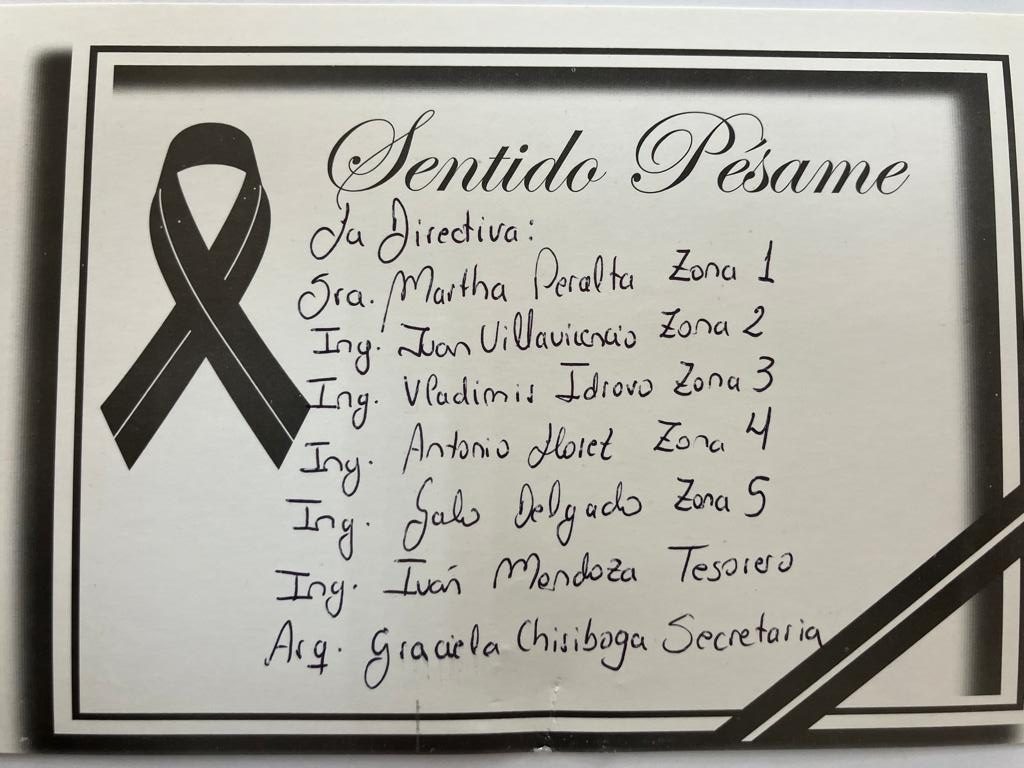 Sentido Pésame
La Directiva:
Sra. Martha Peralta Zona 1
Ing. Juan Villavicencio Zona 2
Ing. Vladimir Idrovo Zona 3
Ing. Antonio Lloret Zona 4
Ing. Galo Delgado Zona 5
Ing. Iván Mendoza Tesorero
Arq. Graciela Chiriboga Secretaria